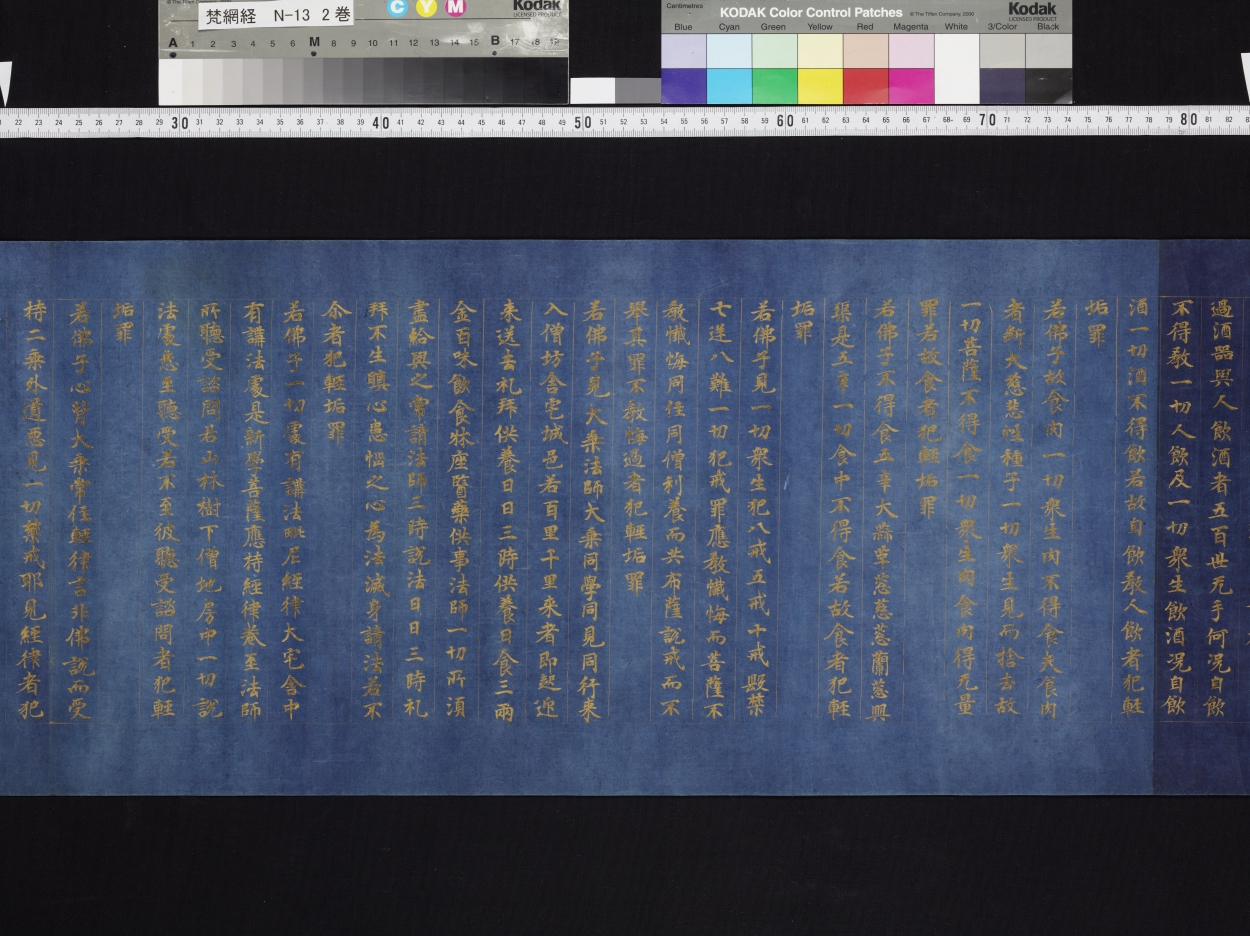 梵網経 N-13 2巻
Kodak
LICENSED PRODUCT
C Y M
A 1 2 3 4 5 6 M 8 9 10 11 12 13 14 15 B 17 18 19
Centimetres
KODAK Color Control Patches
© The Tiffen Company, 2000
Kodak
LICENSED PRODUCT
Blue Cyan Green Yellow Red Magenta White 3/Color Black
22 23 24 25 26 27 28 29 30 31 32 33 34 35 36 37 38 39 40 41 42 43 44 45 46 47 48 49 50 51 52 53 54 55 56 57 58 59 60 61 62 63 64 65 66 67 68 69 70 71 72 73 74 75 76 77 78 79 80 81 82
過酒器與人飲酒者五百世无手何況自飲
不得教一切人飲及一切衆生飲酒況自飲
酒一切酒不得飲若故自飲教人飲者犯輕
垢罪
若佛子故食肉一切衆生肉不得食夫食肉
者斷大慈悲性種子一切衆生見而捨去故
一切菩薩不得食一切衆生肉食肉得无量
罪若故食者犯輕垢罪
若佛子不得食五辛大蒜革葱慈葱蘭葱興
渠是五辛一切食中不得食若故食者犯輕
垢罪
若佛子見一切衆生犯八戒五戒十戒毀禁
七逆八難一切犯戒罪應教懺悔而菩薩不
教懺悔同住同僧利養而共布薩説戒而不
舉其罪不教悔過者犯輕垢罪
若佛子見大乗法師大乗同學同見同行来
入僧坊舍宅城邑若百里千里来者即起迎
来送去礼拜供養日日三時供養日食三兩
金百味飲食牀座醫藥供事法師一切所須
盡給與之常請法師三時説法日日三時礼
拜不生瞋心患惱之心為法滅身請法若不
尒者犯輕垢罪
若佛子一切處有講法毗尼經律大宅舍中
有講法處是新學菩薩應持經律卷至法師
所聽受諮問若山林樹下僧地房中一切説
法處悉至聽受若不至彼聽受諮問者犯輕
垢罪
若佛子心背大乗常住經律言非佛説而受
持二乗外道惡見一切禁戒耶見經律者犯